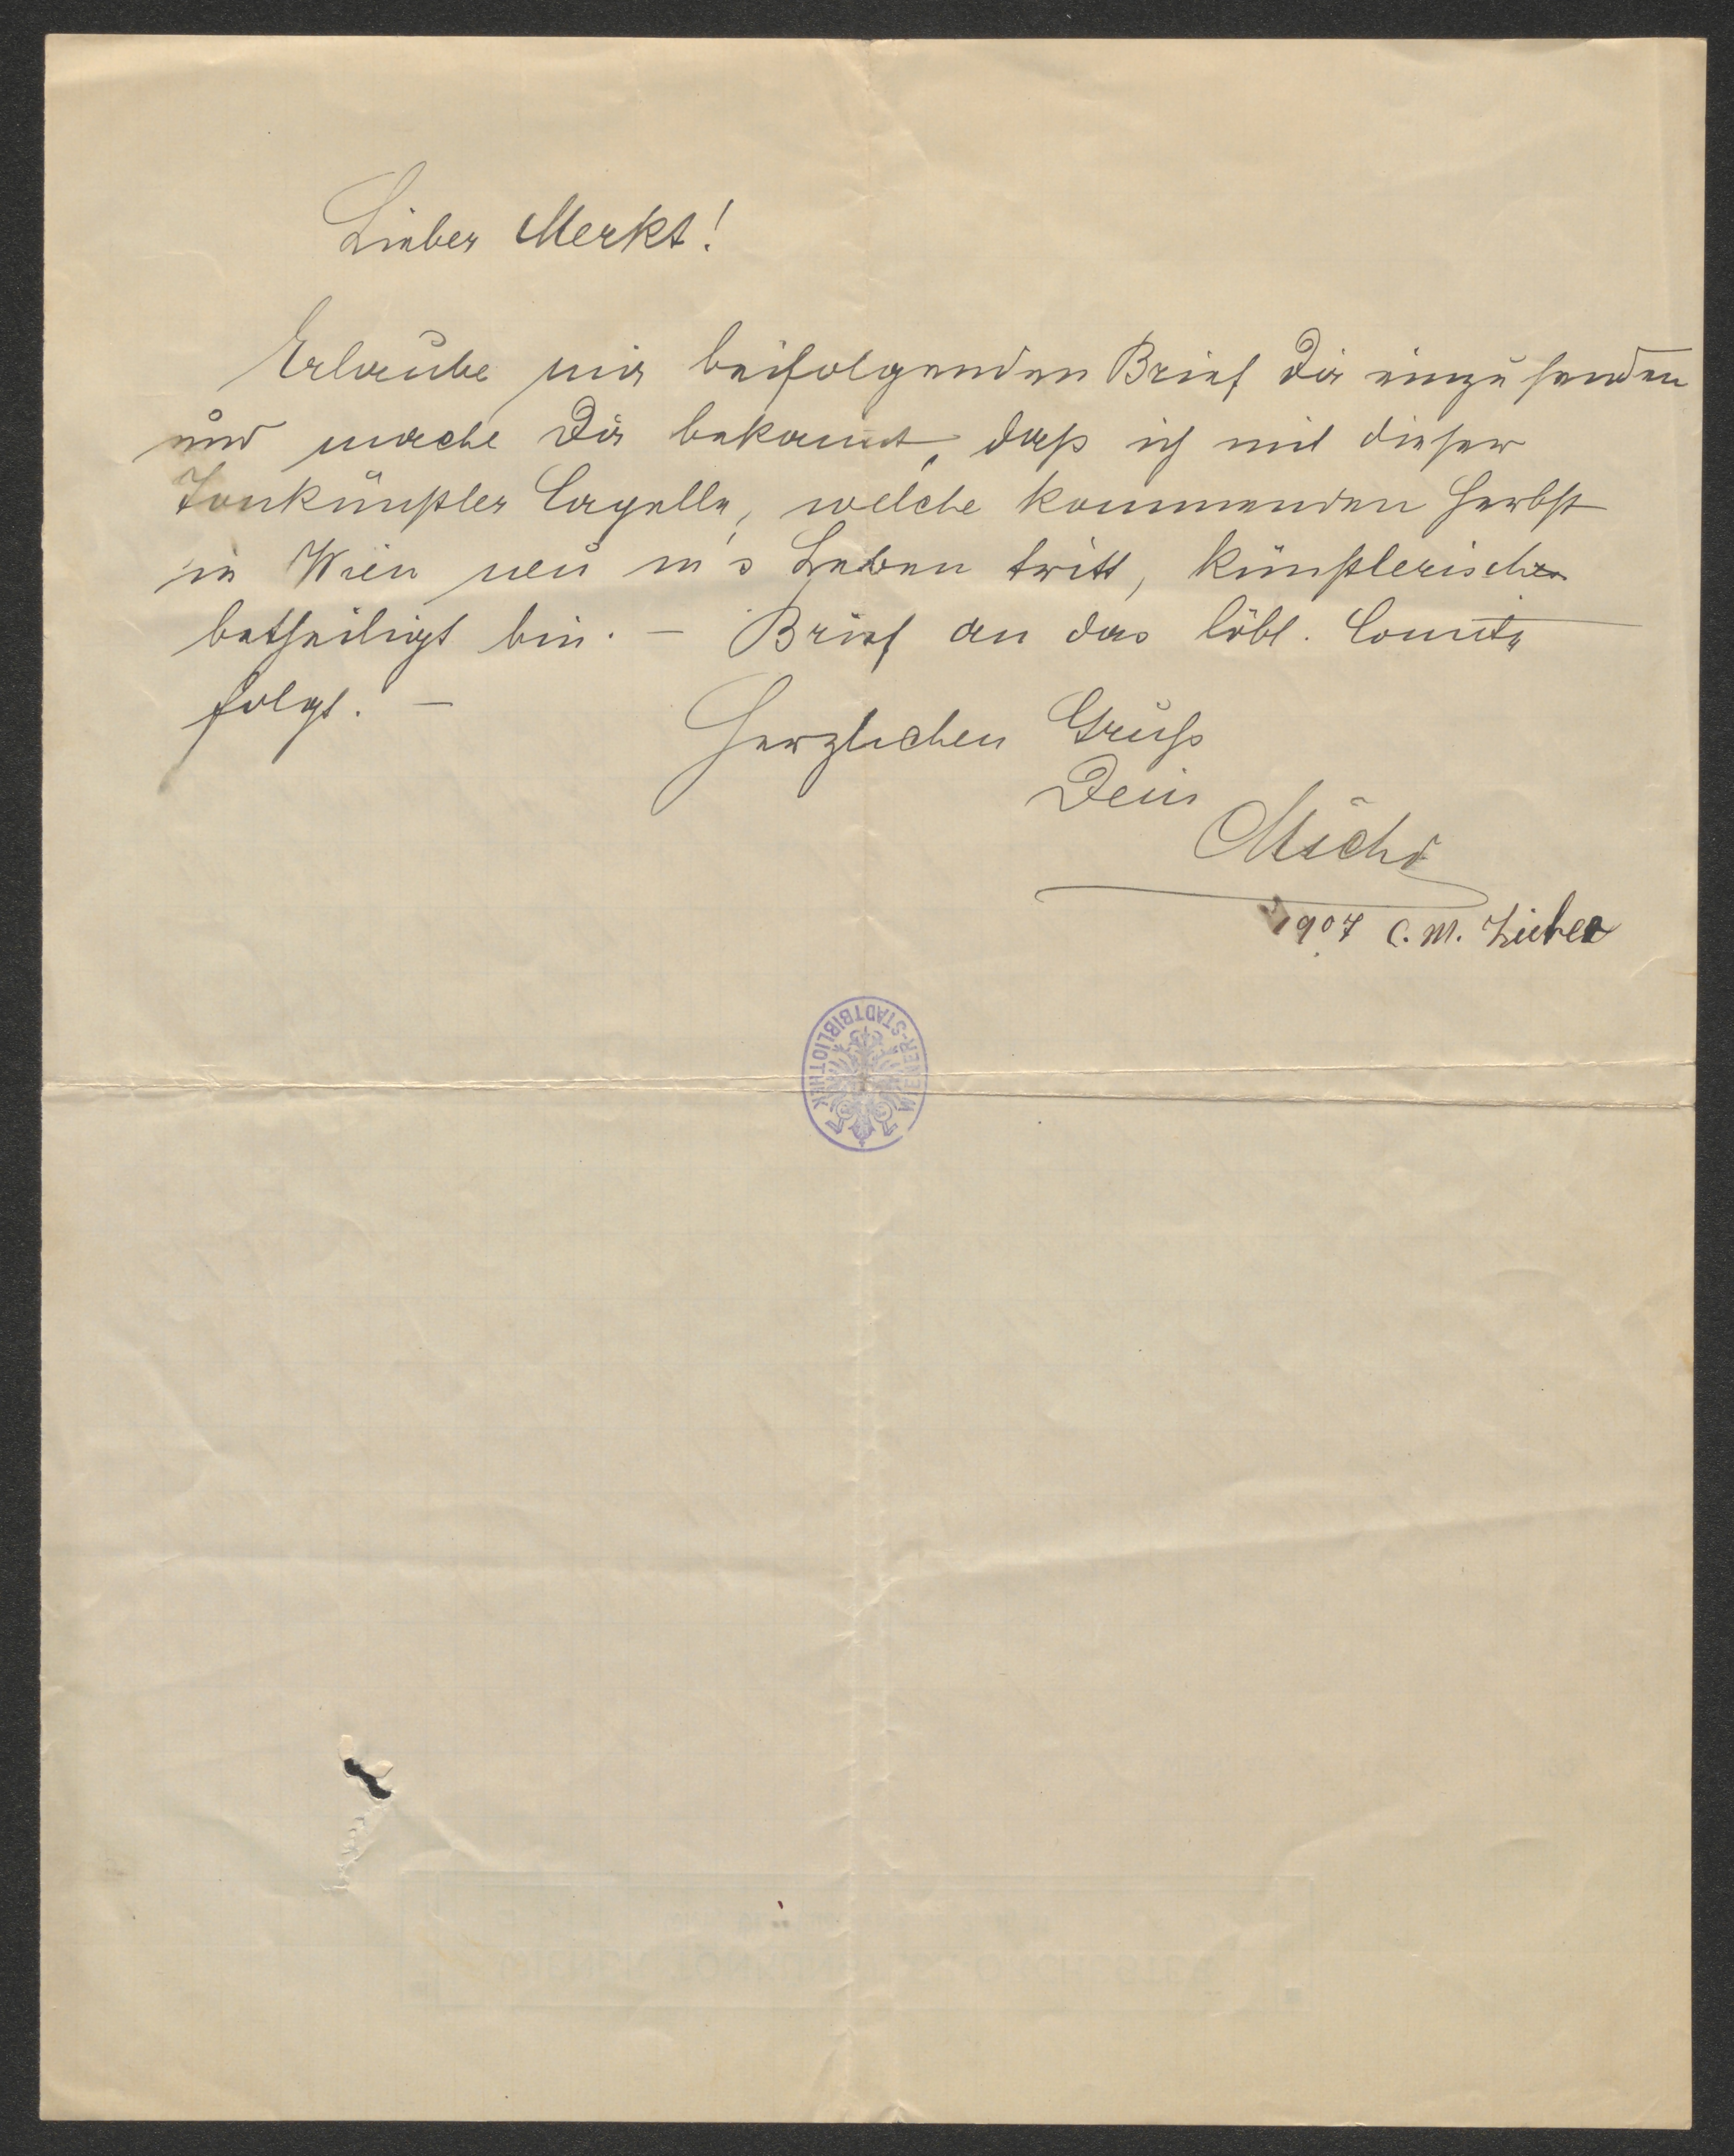 Lieber Merkt!
Erlaube mir beifolgenden Brief Dir einzusenden
und mache Dir bekannt, daß ich mit dieser
Tonkünstler Capelle, welche kommenden Herbst
in Wien neu in's Leben tritt, künstlerisch
betheiligt bin. — Brief an das löbl. Comite
folgt. —
Herzlichen Gruß
Dein
1907 C. M. Ziehrer
WIENER-STADTBIBLIOTHEK